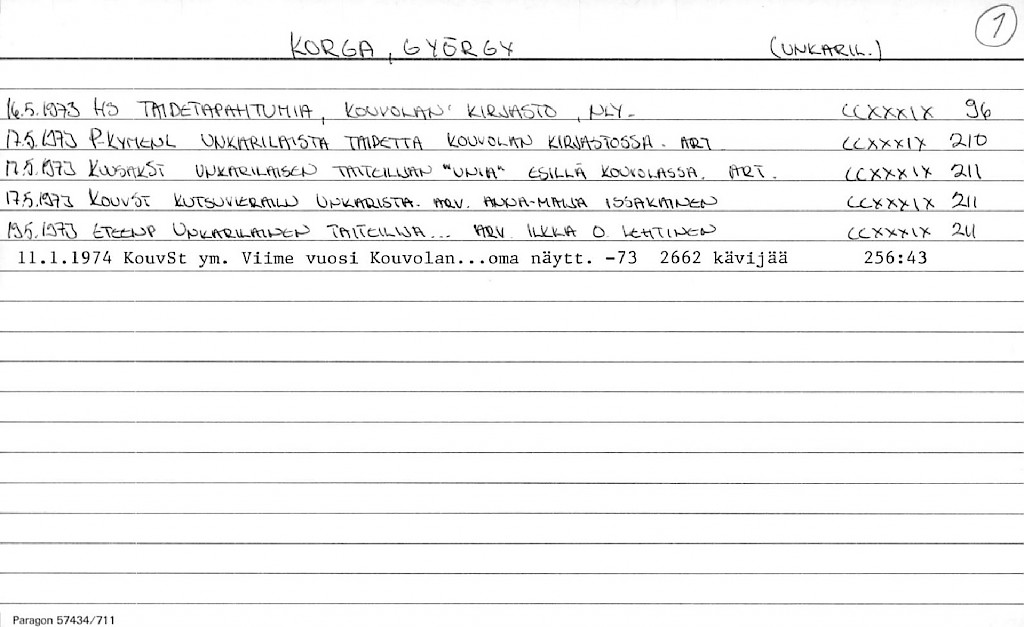 1
KORGA, GYÖRGY (UNKARIL.)
16.5.1973 HS TAIDETAPAHTUMIA, KOUVOLAN KIRJASTO, NLY. CCXXXIX 96
17.5.1973 P-KYMENL UNKARILAISTA TAIDETTA KOUVOLAN KIRJASTOSSA. ART CCXXXIX 210
17.5.1973 KUUSAKST UNKARILAISEN TAITEILIJAN "UNIA" ESILLÄ KOUVOLASSA. ART. CCXXXIX 211
17.5.1973 KOUVST KUTSUVIERAILU UNKARISTA. ARV. ANNA-MAIJA ISSAKAINEN CCXXXIX 211
19.5.1973 ETEENP UNKARILAINEN TAITEILIJA... ARV. ILKKA O. LEHTINEN CCXXXIX 211
11.1.1974 KouvSt ym. Viime vuosi Kouvolan...oma näytt. -73 2662 kävijää 256:43
Paragon 57434/711